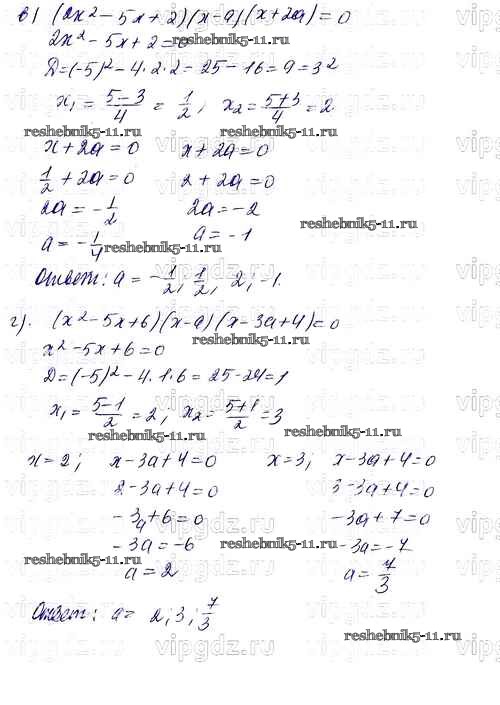 в) (2x² - 5x + 2)(x - a)(x + 2a) = 0
2x² - 5x + 2 = 0
D = (-5)² - 4·2·2 = 25 - 16 = 9 = 3²
x₁ = (5-3)/4 = 1/2, x₂ = (5+3)/4 = 2
reshebnik5-11.ru reshebnik5-11.ru
x + 2a = 0 x + 2a = 0
1/2 + 2a = 0 2 + 2a = 0
2a = -1/2 2a = -2
reshebnik5-11.ru
a = -1/4 a = -1
reshebnik5-11.ru
Ответ: a = -1/2; 1/2, 2; -1.
г). (x² - 5x + 6)(x - a)(x - 3a + 4) = 0
reshebnik5-11.ru
x² - 5x + 6 = 0
D = (-5)² - 4·1·6 = 25 - 24 = 1
x₁ = (5-1)/2 = 2, x₂ = (5+1)/2 = 3
reshebnik5-11.ru reshebnik5-11.ru
x = 2; x - 3a + 4 = 0 x = 3; x - 3a + 4 = 0
2 - 3a + 4 = 0 3 - 3a + 4 = 0
-3a + 6 = 0 -3a + 7 = 0
-3a = -6 -3a = -7
reshebnik5-11.ru reshebnik5-11.ru
a = 2 a = 7/3
Ответ: a = 2; 3; 7/3
reshebnik5-11.ru
vipgdz.ru